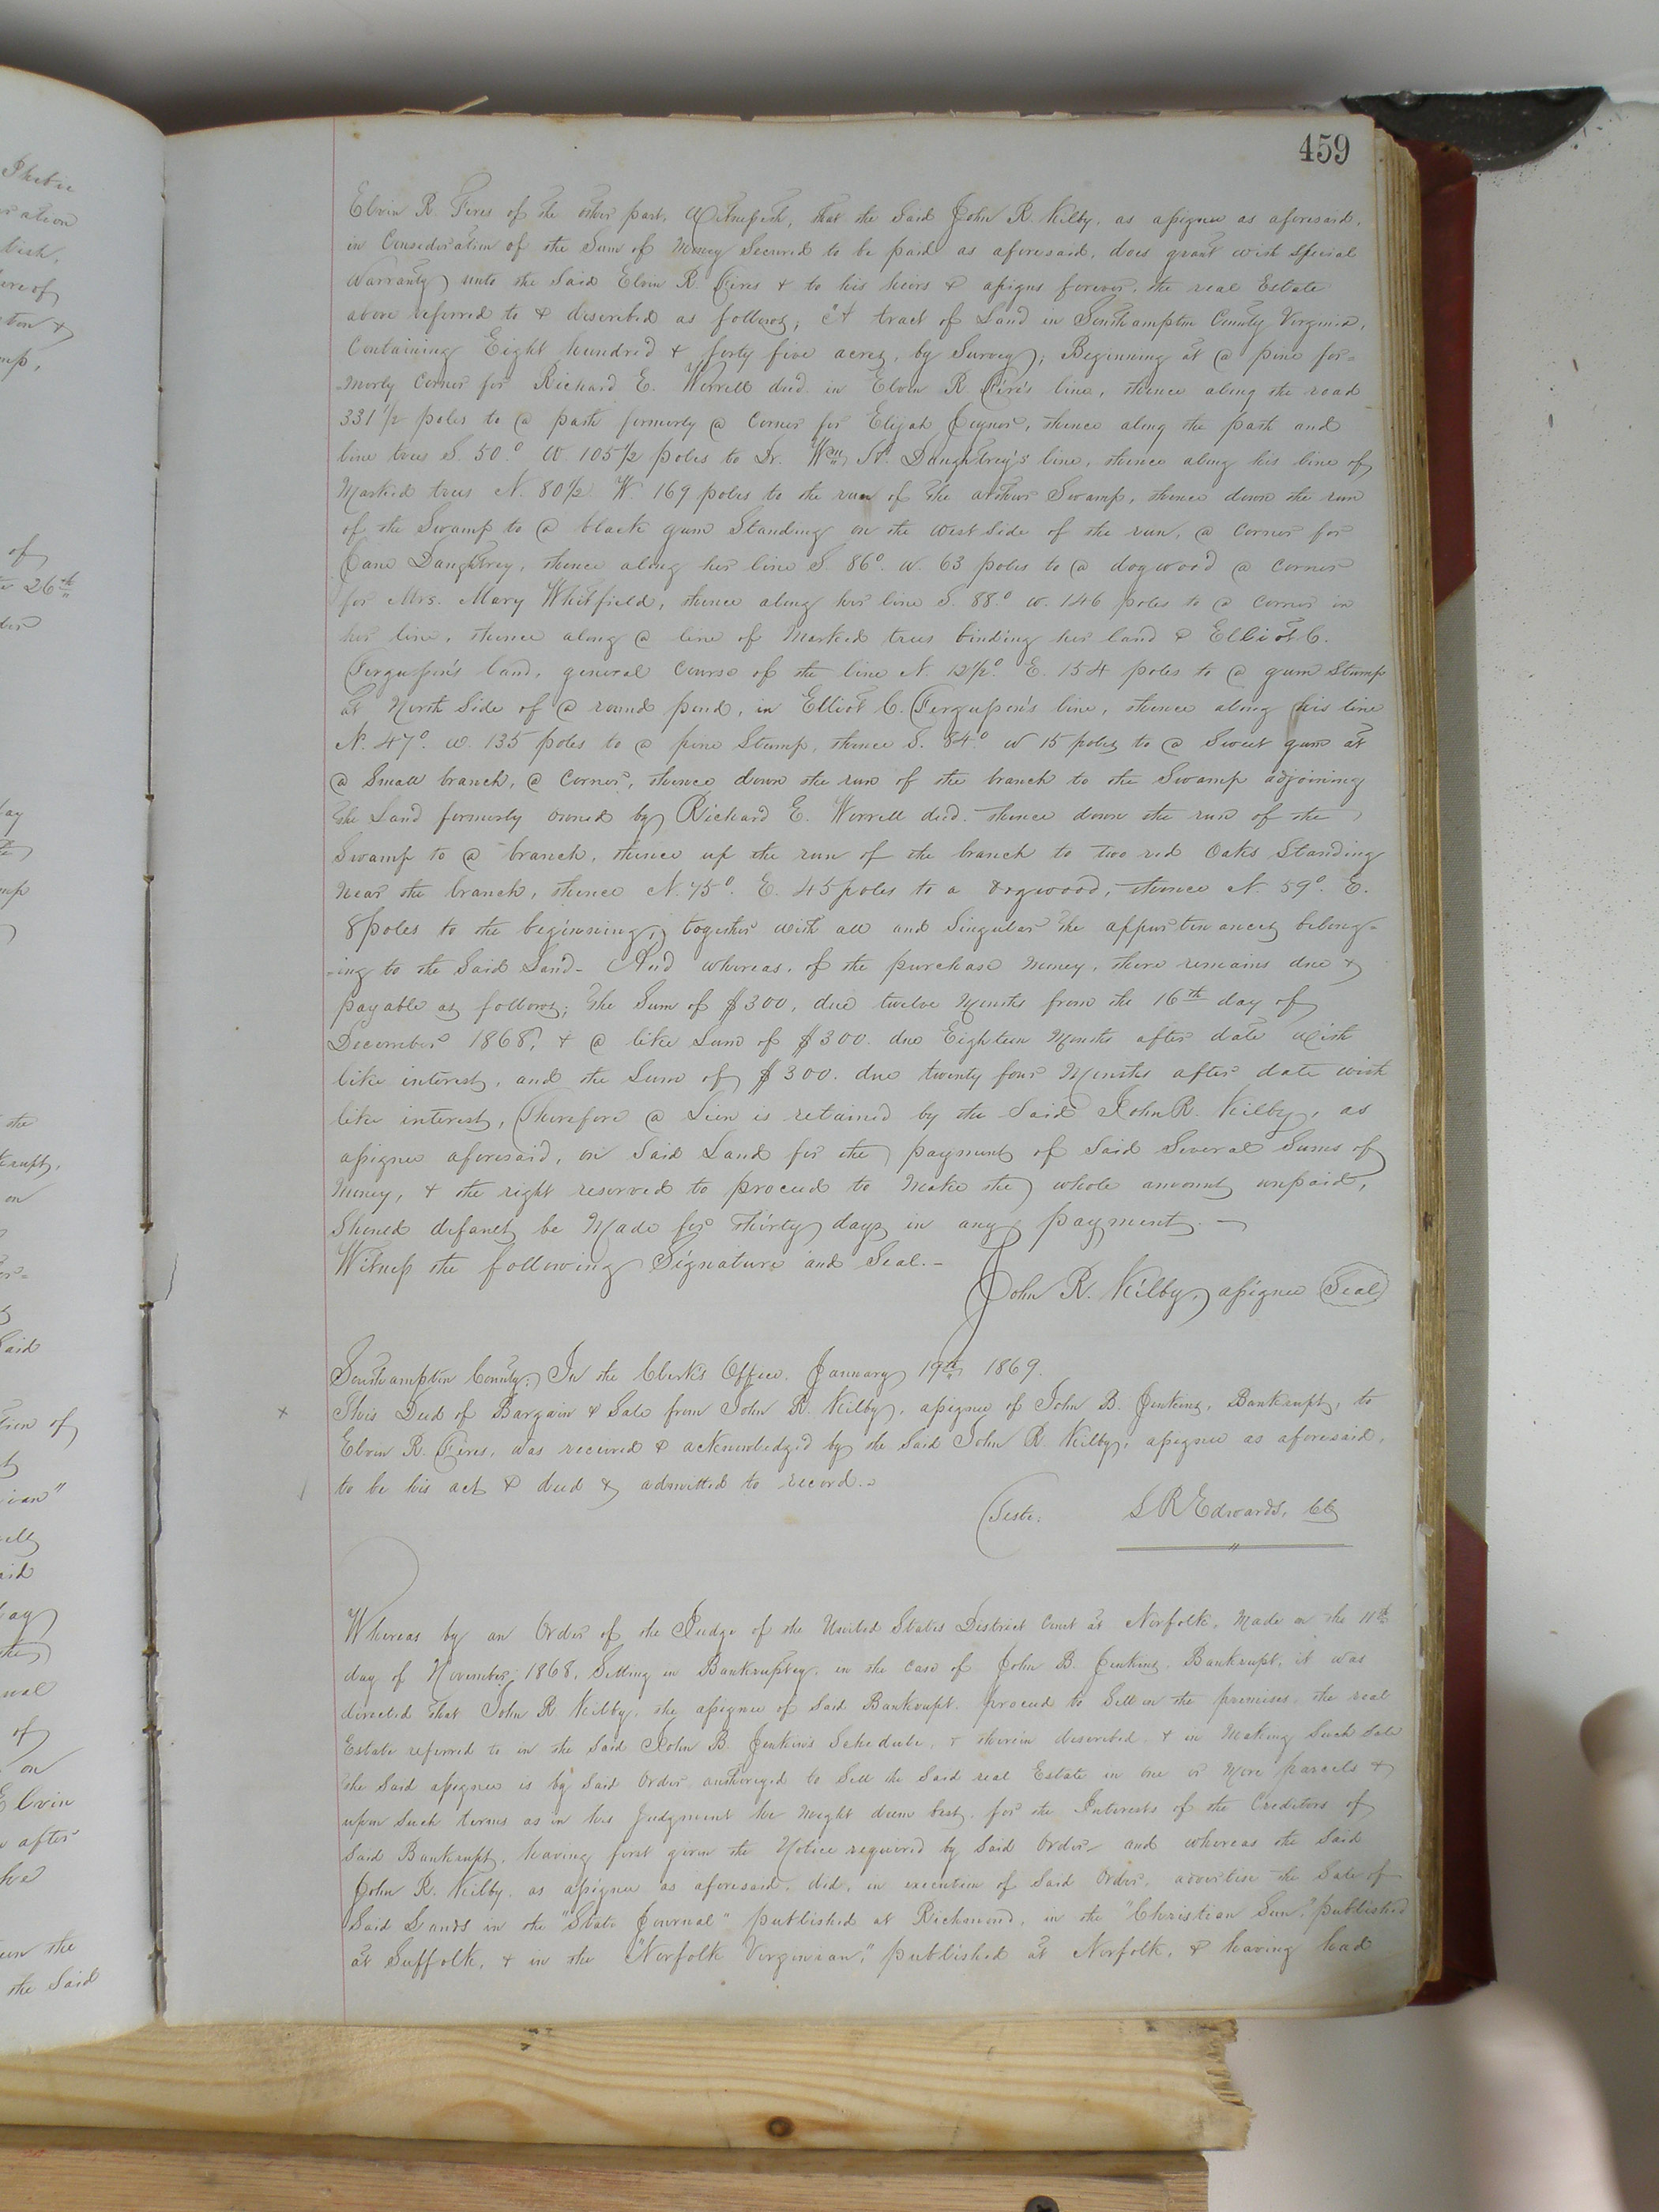 459
Elvin R. Fires of the other part, Witnesseth, that the said John R. Kilby, as assignee as aforesaid,
in Consideration of the Sum of Money Secured to be paid as aforesaid, does grant with special
Warranty unto the Said Elvin R. Fires & to his heirs & assigns forever, the real Estate
above referred to & described as follows; "A tract of Land in Southampton County Virginia,
Containing Eight hundred & forty five acres, by Survey; Beginning at a pine for=
=merly Corner for Richard E. Worrell decd. in Elvin R. Fire's line, thence along the road
331 1/2 poles to a path formerly a Corner for Elijah Joyner, thence along the path and
line trees S. 50.° W. 105 1/2 poles to Dr. Wm A. Daughtrey's line, thence along his line of
Marked trees N. 80 1/2 W. 169 poles to the run of the Swamp, thence down the run
of the Swamp to a black gum Standing on the west Side of the run, a Corner for
Jane Daughtrey, thence along her line S. 86.° W. 63 poles to a dogwood a corner
for Mrs. Mary Whitfield, thence along her line S. 88.° W. 146 poles to a Corner in
her line, thence along a line of Marked trees binding her land & Elliot C.
Fergusson's land, general Course of the line N. 12 1/2.° E. 154 poles to a gum Stump
at North Side of a round pond, in Elliot C. Fergusson's line, thence along his line
N. 47°. W. 135 poles to a pine Stump, thence S. 84.° W 15 poles to a Sweet gum at
a Small branch, a Corner, thence down the run of the branch to the Swamp adjoining
the Land formerly owned by Richard E. Worrell decd. thence down the run of the
Swamp to a branch, thence up the run of the branch to two red Oaks Standing
Near the branch, thence N. 75°. E. 45 poles to a dogwood, thence N. 59°. E.
8 poles to the beginning, together with all and Singular the appurtenances belong=
=ing to the Said Land- And whereas, of the purchase Money, there remains due &
payable as follows; the Sum of $300, due twelve Months from the 16th day of
December 1868, & a like Sum of $300. due Eighteen Months after date with
like interest, and the Sum of $300. due twenty four Months after date with
like interest, Therefore a Lien is retained by the Said John R. Kilby, as
assignee aforesaid, on Said Land for the payment of Said Several Sums of
Money, & the right reserved to proceed to Make the whole amount unpaid,
Should default be Made for thirty days in any payment. -
Witness the following Signature and Seal. -
John R. Kilby, assignee Seal
Southampton County; In the Clerk's Office, January 19th 1869.
This Deed of Bargain & Sale from John R. Kilby, assignee of John B. Jenkins, Bankrupt, to
Elvin R. Fires, was received & acknowledged by the Said John R. Kilby, assignee as aforesaid,
to be his act & deed & admitted to record. -
Teste: L R Edwards, Clk
Whereas by an Order of the Judge of the United States District Court at Norfolk, Made on the 11th
day of November 1868, Sitting in Bankruptcy, in the case of John B. Jenkins, Bankrupt, it was
directed that John R. Kilby, the assignee of Said Bankrupt, proceed to Sell on the premises, the real
Estate referred to in the Said John B. Jenkins Schedule, & therein described, & in Making Such Sale
the Said assignee is by Said Order authorized to Sell the Said real Estate in one or More parcels &
upon Such terms as in his Judgment he Might deem best, for the Interests of the Creditors of
Said Bankrupt, having first given the Notice required by Said Order, and whereas the Said
John R. Kilby, as assignee as aforesaid, did, in execution of Said Order, advertise the Sale of
Said Lands in the "State Journal" published at Richmond, in the "Christian Sun," published
at Suffolk, & in the "Norfolk Virginian," published at Norfolk, & having had